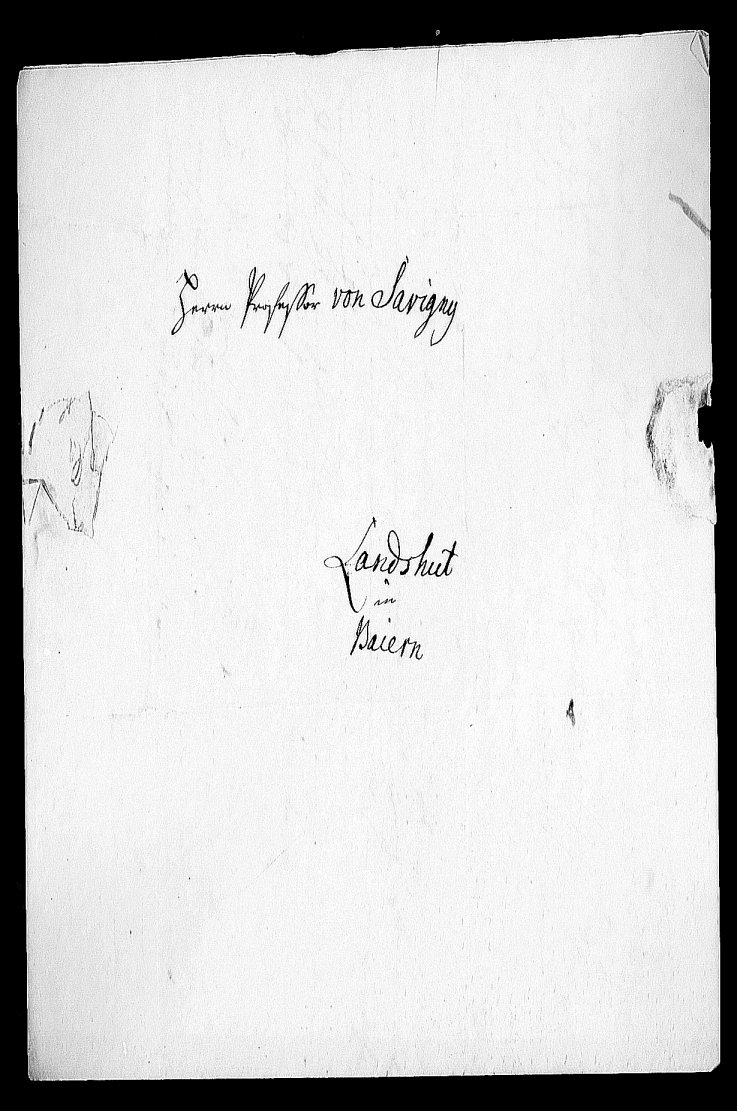 Herrn Professor von Savigny
Landshut
in
Baiern